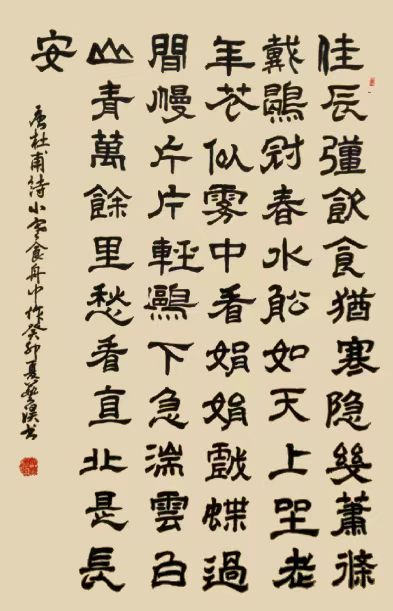 佳辰彊飲食猶寒隐幾蕭條
戴鶡冠春水船如天上坐老
年花似雾中看娟娟戲蝶過
間幔片片輕鷗下急湍雲白
山青萬餘里愁看直北是長
安
唐杜甫詩小寒食舟中作癸卯夏书